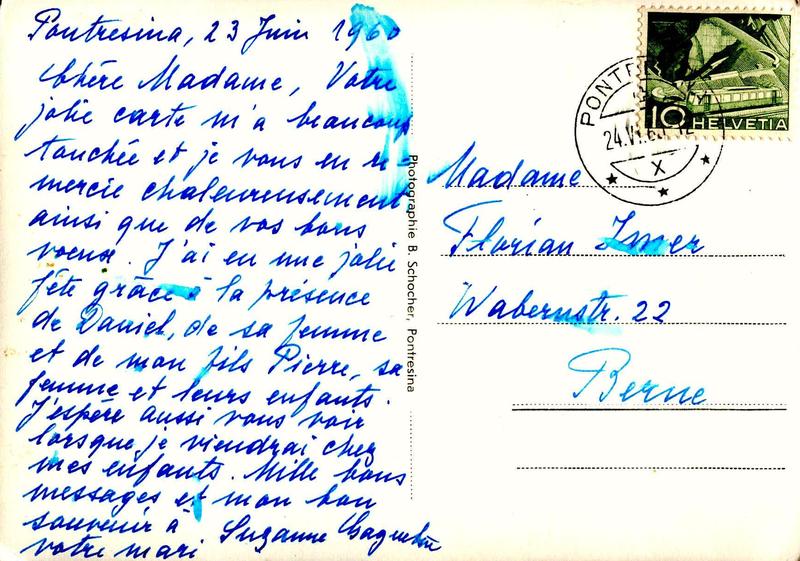 Pontresina, 23 Juin 1960
Chère Madame, Votre
jolie carte m'a beaucoup
touchée et je vous en re-
mercie chaleureusement
ainsi que de vos bons
voeux. J'ai eu une jolie
fête grâce à la présence
de Daniel, de sa femme
et de mon fils Pierre, sa
femme et leurs enfants.
J'espère aussi vous voir
lorsque je viendrai chez
mes enfants. Mille bons
messages et mon bon
souvenir à
votre mari
Suzanne
Photographie B. Schocher, Pontresina
10 HELVETIA
24.VI.60
X
Madame
Florian
Wabernstr. 22
Berne